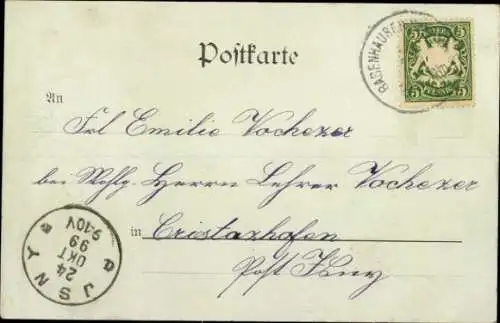 BABENHAUSEN
BAYERN
5 5
5 PFENNIG 5
Postkarte
An
Frl Emilie Vochezer
bei Wohlg. Herrn Lehrer Vochezer
in Cristazhofen
Post Isny
ISNY
24
OKT
99
9-10V